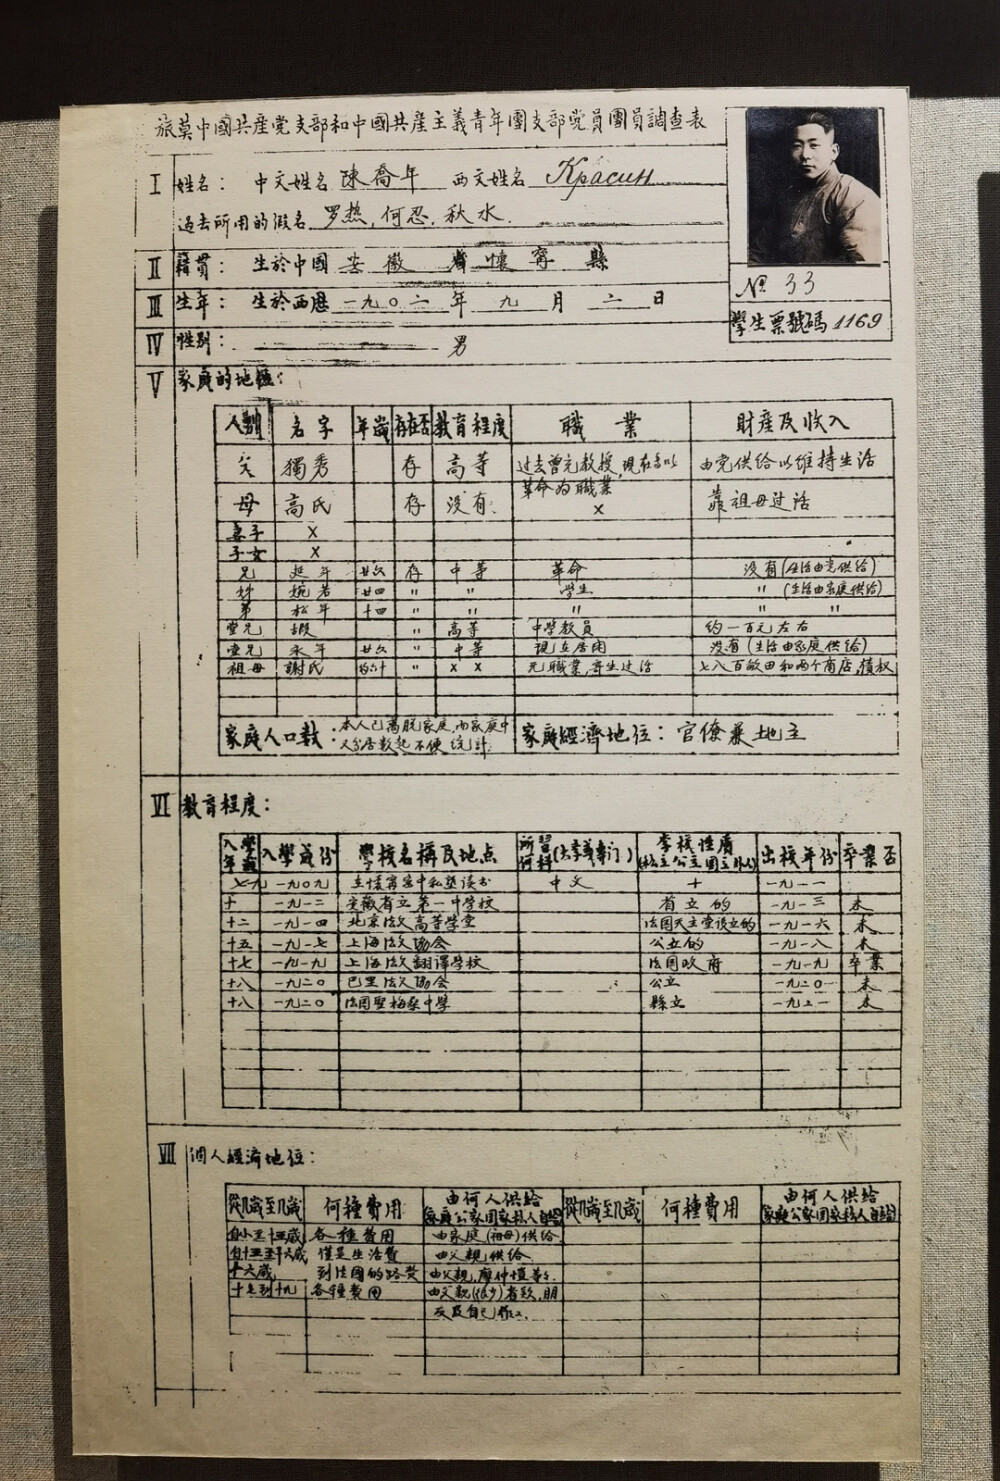 旅莫中國共產党支部和中國共產主義青年團支部党員團員調查表
I 姓名： 中文姓名 陳喬年 西文姓名 Красин
過去所用的假名 罗热, 何忍, 秋水.
No 33
學生票號碼 1169
II 籍贯： 生於中國 安徽 省 懷寧 縣
III 生年： 生於西歷 一九〇二 年 九 月 二 日
IV 性别： 男
V 家庭的地位：
人别 名字 年歲 存在否 教育程度 職業 財產及收入
父 獨秀 存 高等 过去曾充教授, 現在专以革命为職業 由党供给以維持生活
母 高氏 存 没有 × 靠祖母过活
妻子 ×
子女 ×
兄 延年 廿六 存 中等 革命 没有(生活由党供给)
姊 婉若 廿四 〃 〃 学生 〃 (生活由家庭供给)
弟 松年 十四 〃 〃 〃 〃 〃
堂兄 遐 〃 高等 中學教員 约一百元左右
堂兄 永年 廿六 〃 中等 現立居闲 没有(生活由家庭供给)
祖母 謝氏 〃 × × 无職業, 寄生过活 七八百畝田和两个商店, 債权
家庭人口数： 本人已离脱家庭, 内家庭中人分居数起不便统計 家庭經濟地位： 官僚兼地主
VI 教育程度：
入學年歲 入學年份 學校名稱及地點 所習何科(大学或专门) 学校性质(私立公立国立外人) 出校年份 卒業否
七九 一九〇九 在懷寧家中私塾读书 中文 + 一九一一
十一 一九一二 安徽省立第一中学校 省立的 一九一三 未
十二 一九一四 北京法文高等学堂 法国天主堂设立的 一九一六 未
十五 一九一七 上海法文协会 公立的 一九一八 未
十七 一九一九 上海法文翻譯学校 法国政府 一九一九 卒業
十八 一九二〇 巴里法文协会 公立 一九二〇 未
十八 一九二〇 法国聖梅桑中學 縣立 一九二一 未
VII 個人經濟地位：
從几歲至几歲 何種費用 由何人供給 家庭公家国家私人自給 從几歲至几歲 何種費用 由何人供給 家庭公家国家私人自給
自小至十五歲 各種費用 由家庭(祖母)供给
自十五至十六歲 僅是生活費 由父親供给
十六歲 到法國的路费 由父親, 廖仲愷等.
十七到十九 各種費用 由父親(很少)有款, 朋友及自己作工.